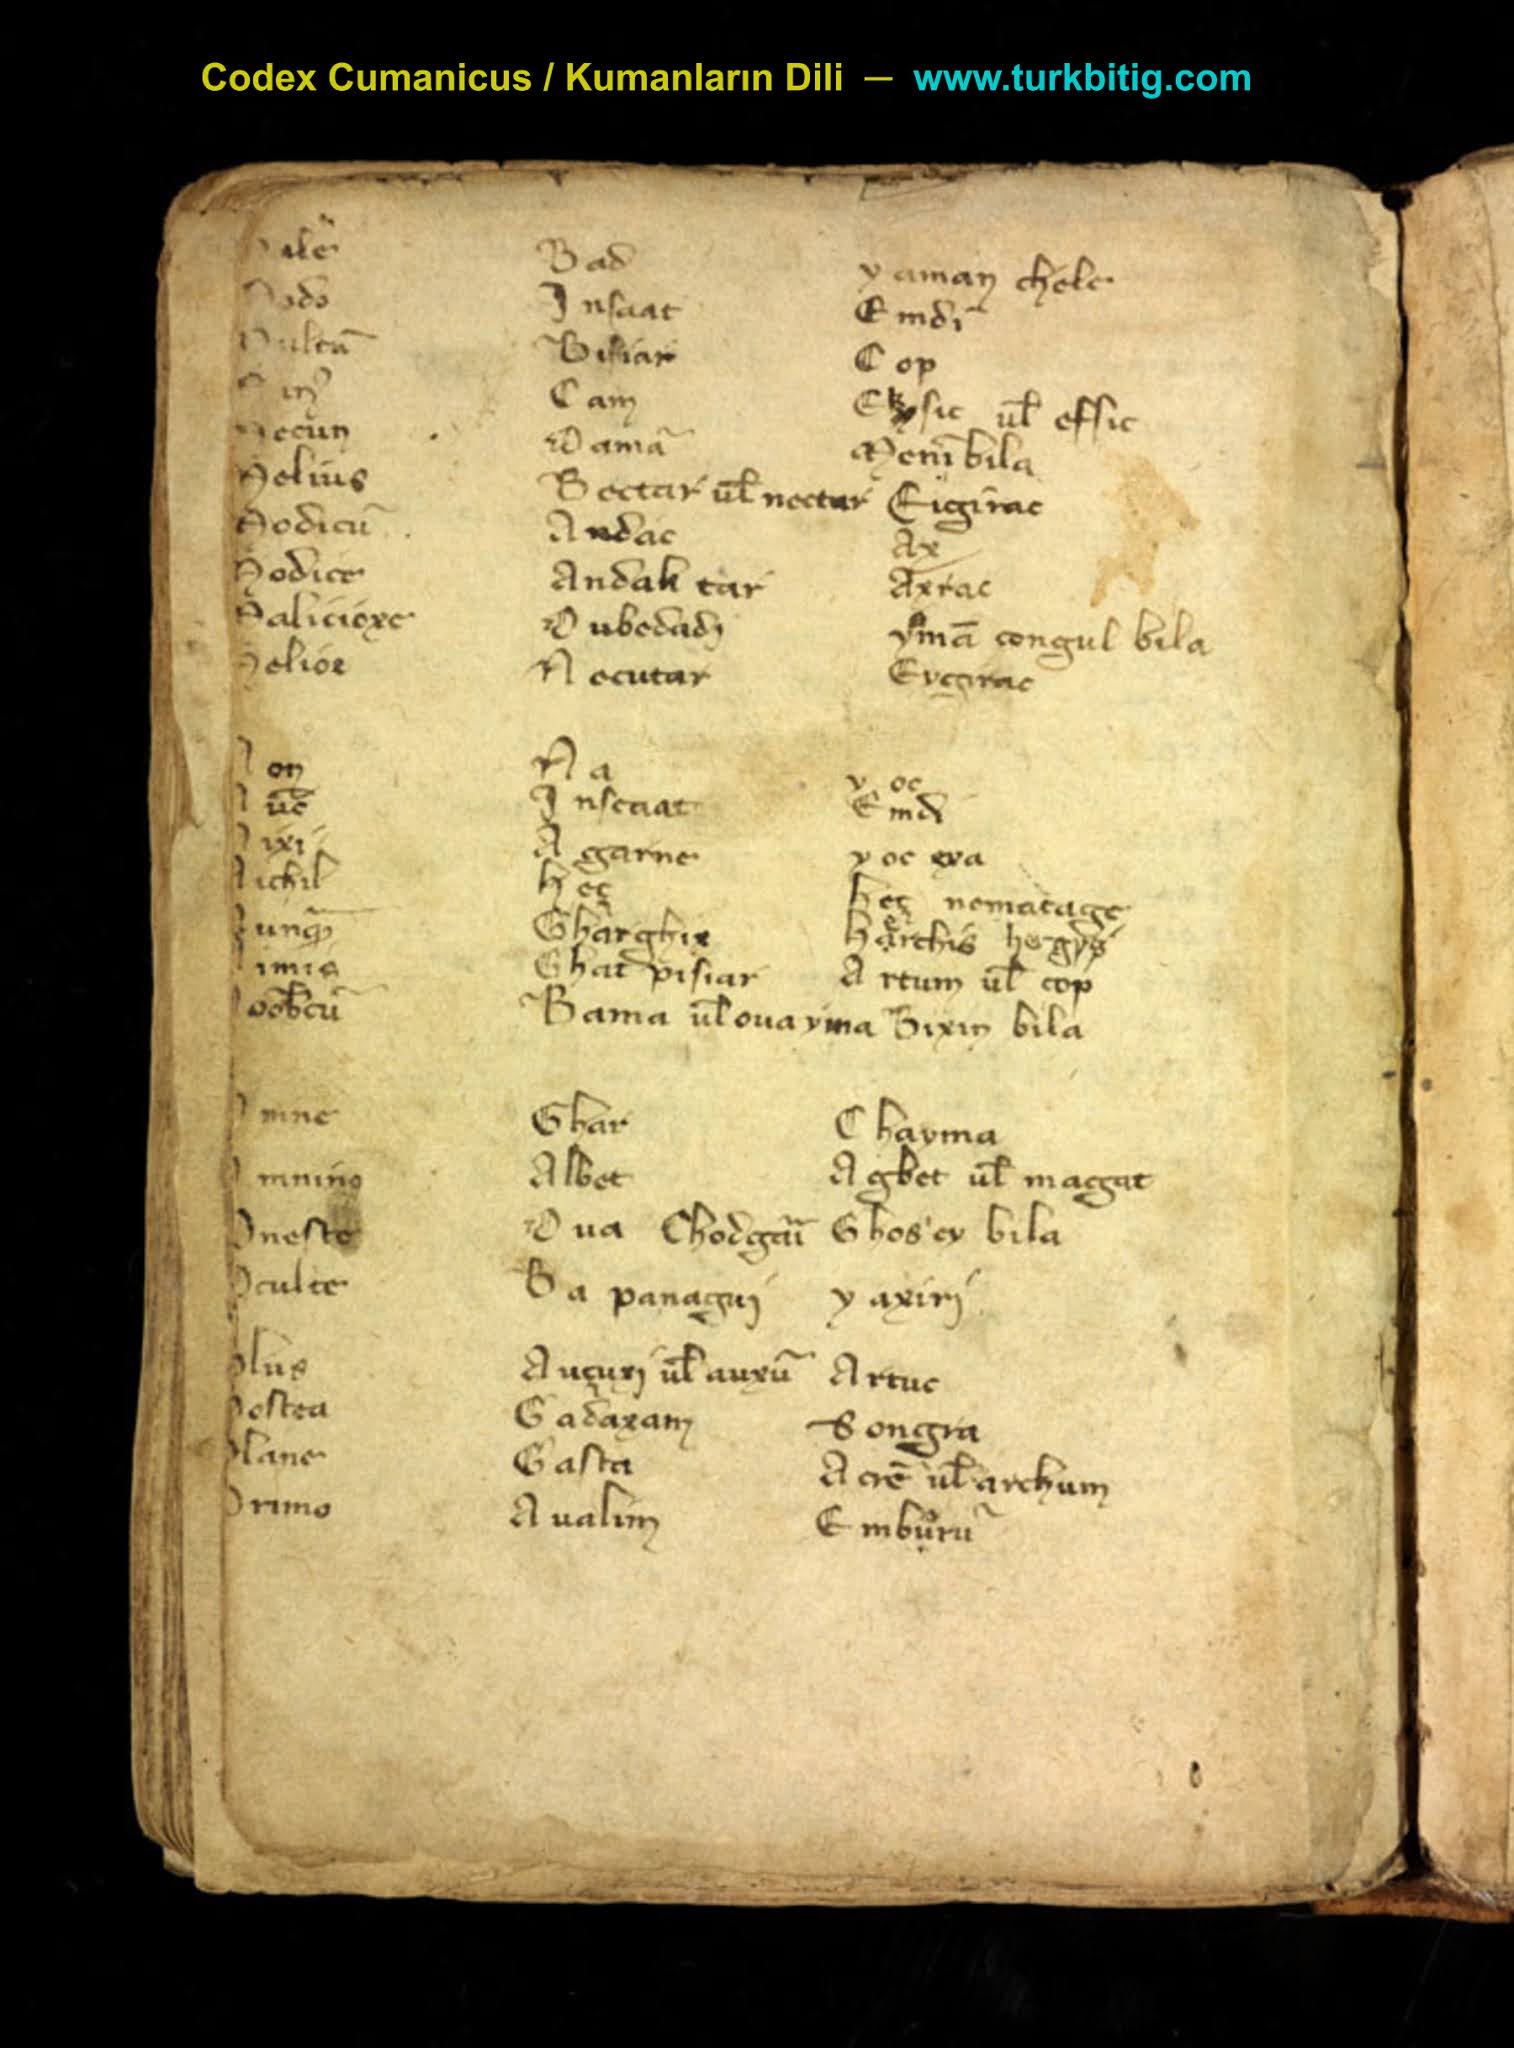 Codex Cumanicus / Kumanların Dili — www.turkbitig.com
Malē Bad yaman chele
Modo Insaat Emdi
Multū Bisiar Cop
Cam Eksic ul̄ essic
Mecun Damā Menī bila
Melius Bectar ul̄ nectar Eicgirac
Modicū Andac Ax
Modice Andak tar Axrac
Malicioxe Dubedadj ymā congul bila
Melior Necutar Eycgirac
Non Na yoc
Nūc Insaat Emdi
Nixi Agarne yoc exa
Nichil Heç heç nematage
Nunqȝ Gharghix harchis hergys
Nimis Ghat pisiar Artum ul̄ cop
Nobcū Bama ul̄ oua yma Bixin bila
Omne Ghar Chayma
Omnino Albet Agbet ul̄ macgat
Oneste Dua Chodgāi Ghos ey bila
Oculte Ba panaguj yaxirj
Plus Auçuxj ul̄ auxū Artuc
Postea Badaxam Songra
Plane Gasta Acrē ul̄ archum
Primo Aualim Emburū